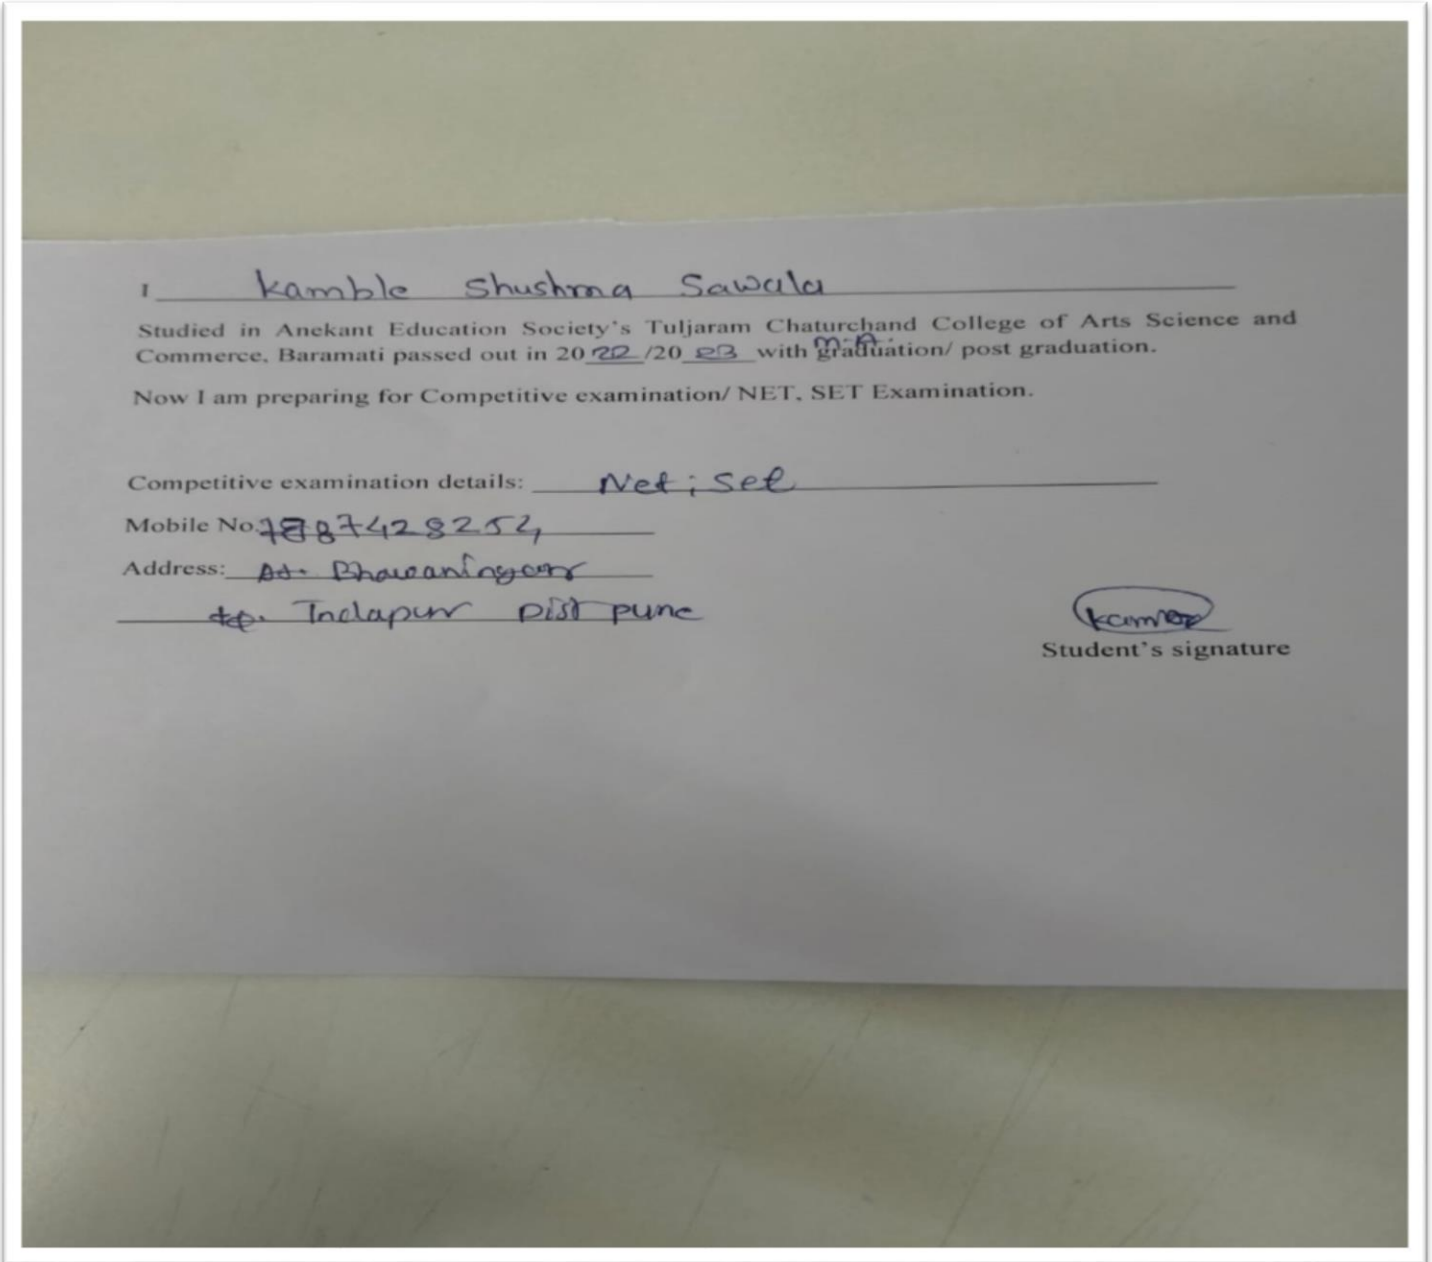 I Kamble Shushma Sawala
Studied in Anekant Education Society's Tuljaram Chaturchand College of Arts Science and
M.A.
Commerce, Baramati passed out in 2022/2023 with graduation/ post graduation.
Now I am preparing for Competitive examination/ NET, SET Examination.
Competitive examination details: Net; Set
Mobile No.
Address: At. Bhawaningar
tq. Indapur Dist pune
Student's signature